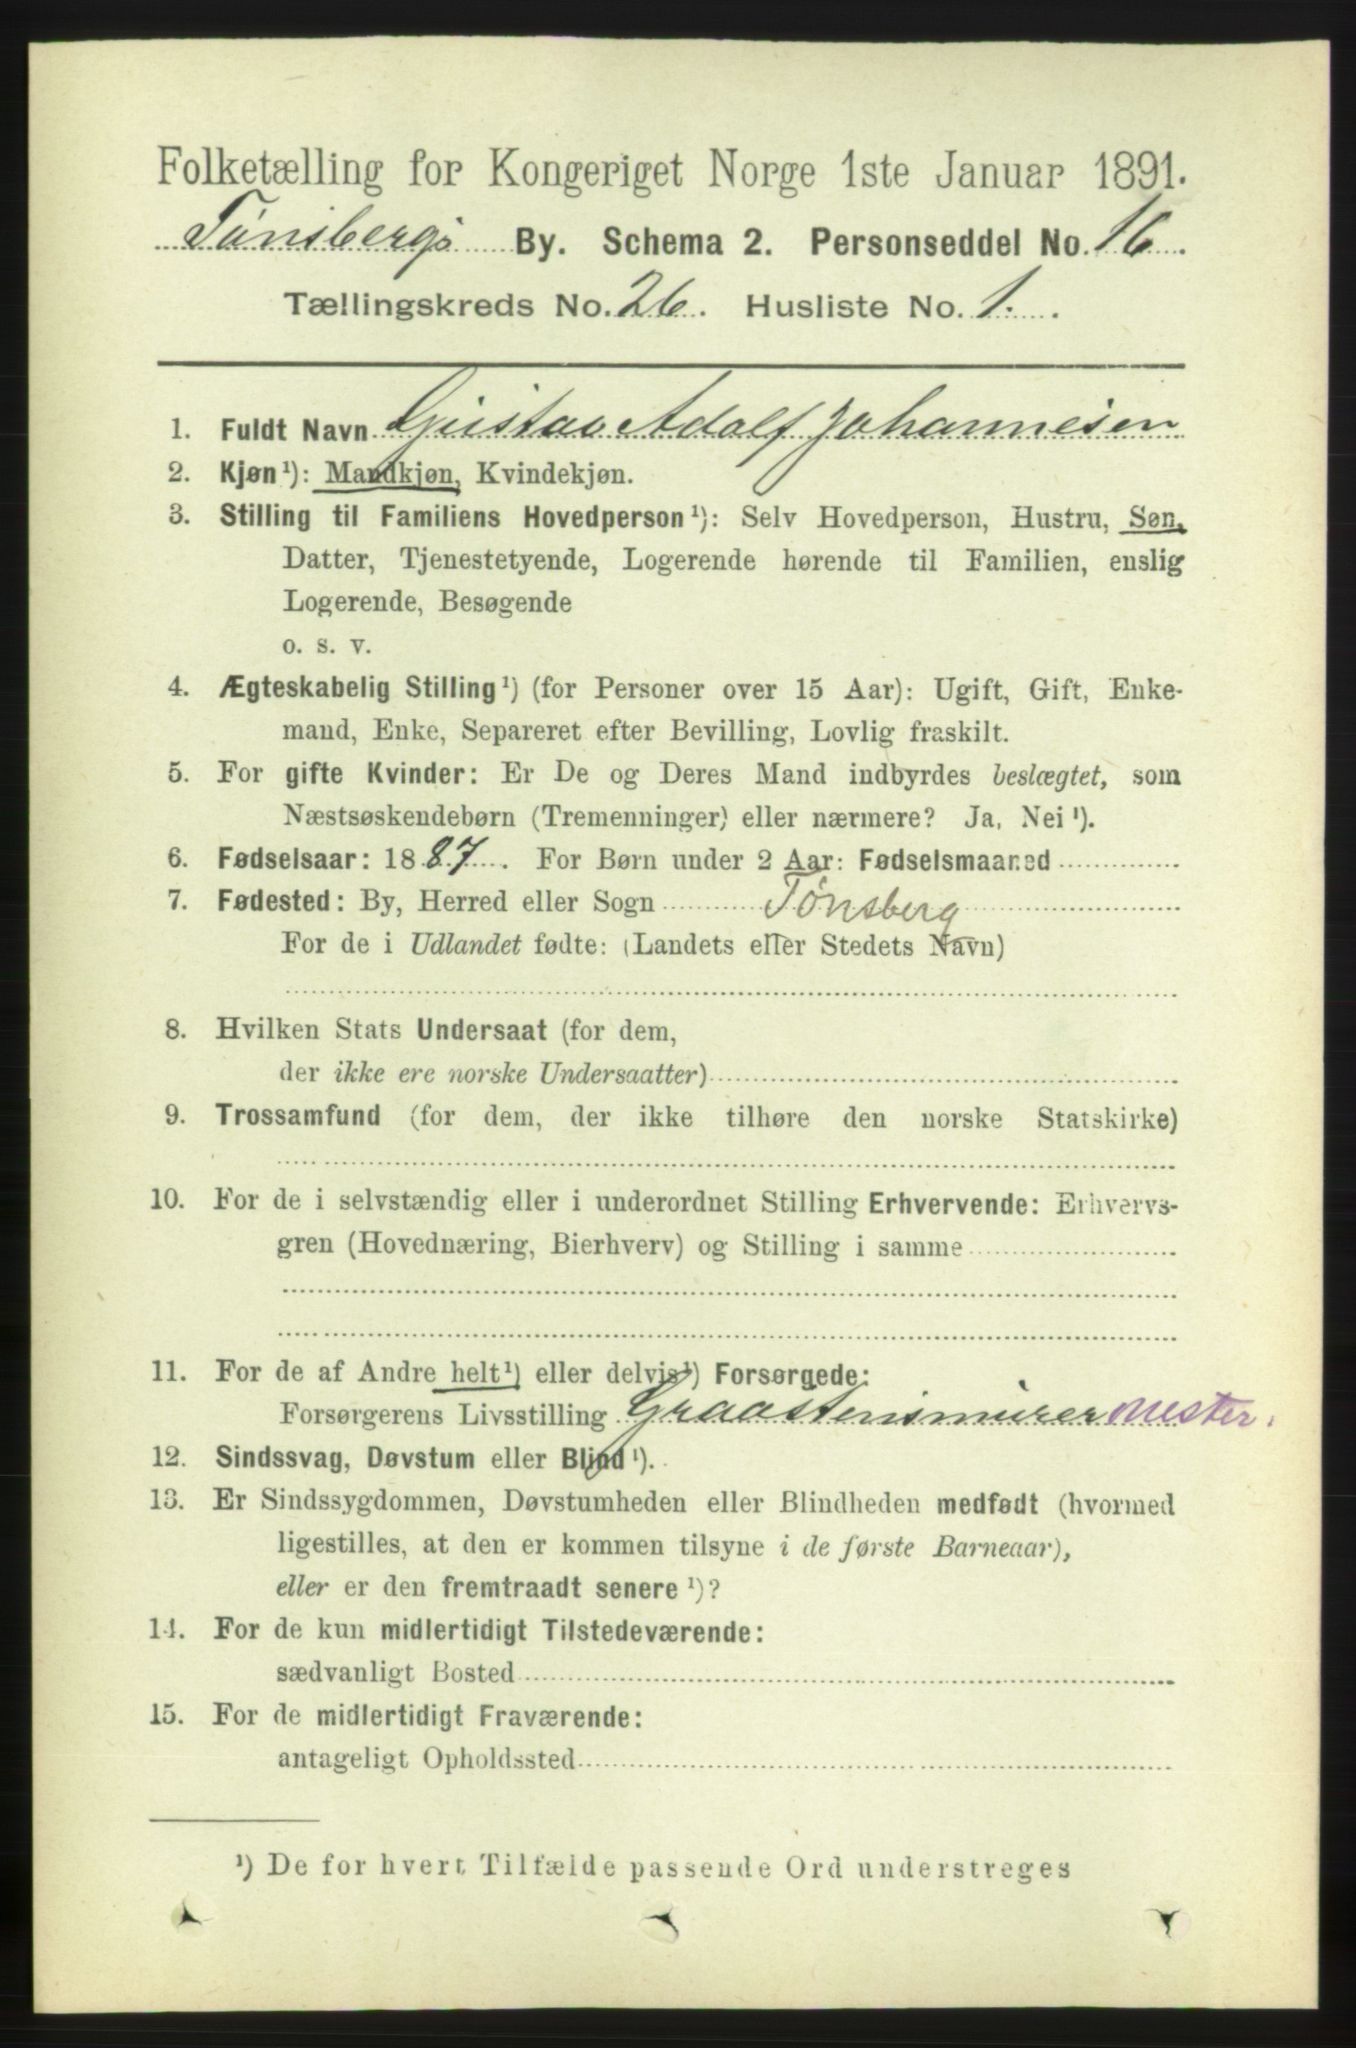 Folketælling for Kongeriget Norge 1ste Januar 1891.
Tønsbergs By. Schema 2. Personseddel No. 16.
Tællingskreds No. 26. Husliste No. 1.
1. Fuldt Navn Gustav Adolf Johannesen
2. Kjøn¹): Mandkjøn, Kvindekjøn.
3. Stilling til Familiens Hovedperson¹): Selv Hovedperson, Hustru, Søn,
Datter, Tjenestetyende, Logerende hørende til Familien, enslig
Logerende, Besøgende
o. s. v.
4. Ægteskabelig Stilling¹) (for Personer over 15 Aar): Ugift, Gift, Enke-
mand, Enke, Separeret efter Bevilling, Lovlig fraskilt.
5. For gifte Kvinder: Er De og Deres Mand indbyrdes beslægtet, som
Næstsøskendebørn (Tremenninger) eller nærmere? Ja, Nei¹).
6. Fødselsaar: 1887. For Børn under 2 Aar: Fødselsmaaned
7. Fødested: By, Herred eller Sogn Tønsberg
For de i Udlandet fødte: (Landets eller Stedets Navn)
8. Hvilken Stats Undersaat (for dem,
der ikke ere norske Undersaatter)
9. Trossamfund (for dem, der ikke tilhøre den norske Statskirke)
10. For de i selvstændig eller i underordnet Stilling Erhvervende: Erhvervs-
gren (Hovednæring, Bierhverv) og Stilling i samme
11. For de af Andre helt¹) eller delvis¹) Forsørgede:
Forsørgerens Livsstilling Graastensmurermester.
12. Sindssvag, Døvstum eller Blind¹).
13. Er Sindssygdommen, Døvstumheden eller Blindheden medfødt (hvormed
ligestilles, at den er kommen tilsyne i de første Barneaar),
eller er den fremtraadt senere¹)?
14. For de kun midlertidigt Tilstedeværende:
sædvanligt Bosted
15. For de midlertidigt Fraværende:
antageligt Opholdssted
¹) De for hvert Tilfælde passende Ord understreges